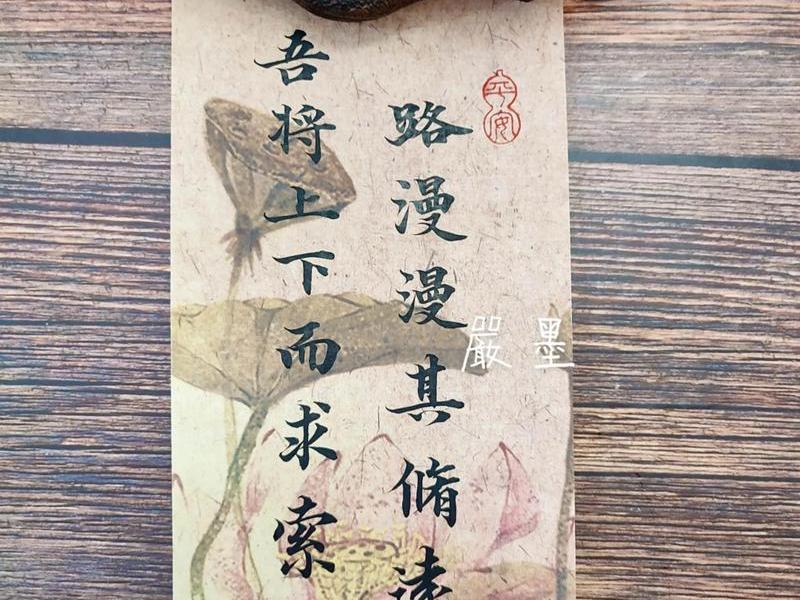 平安
路漫漫其脩遠
吾将上下而求索
嚴墨